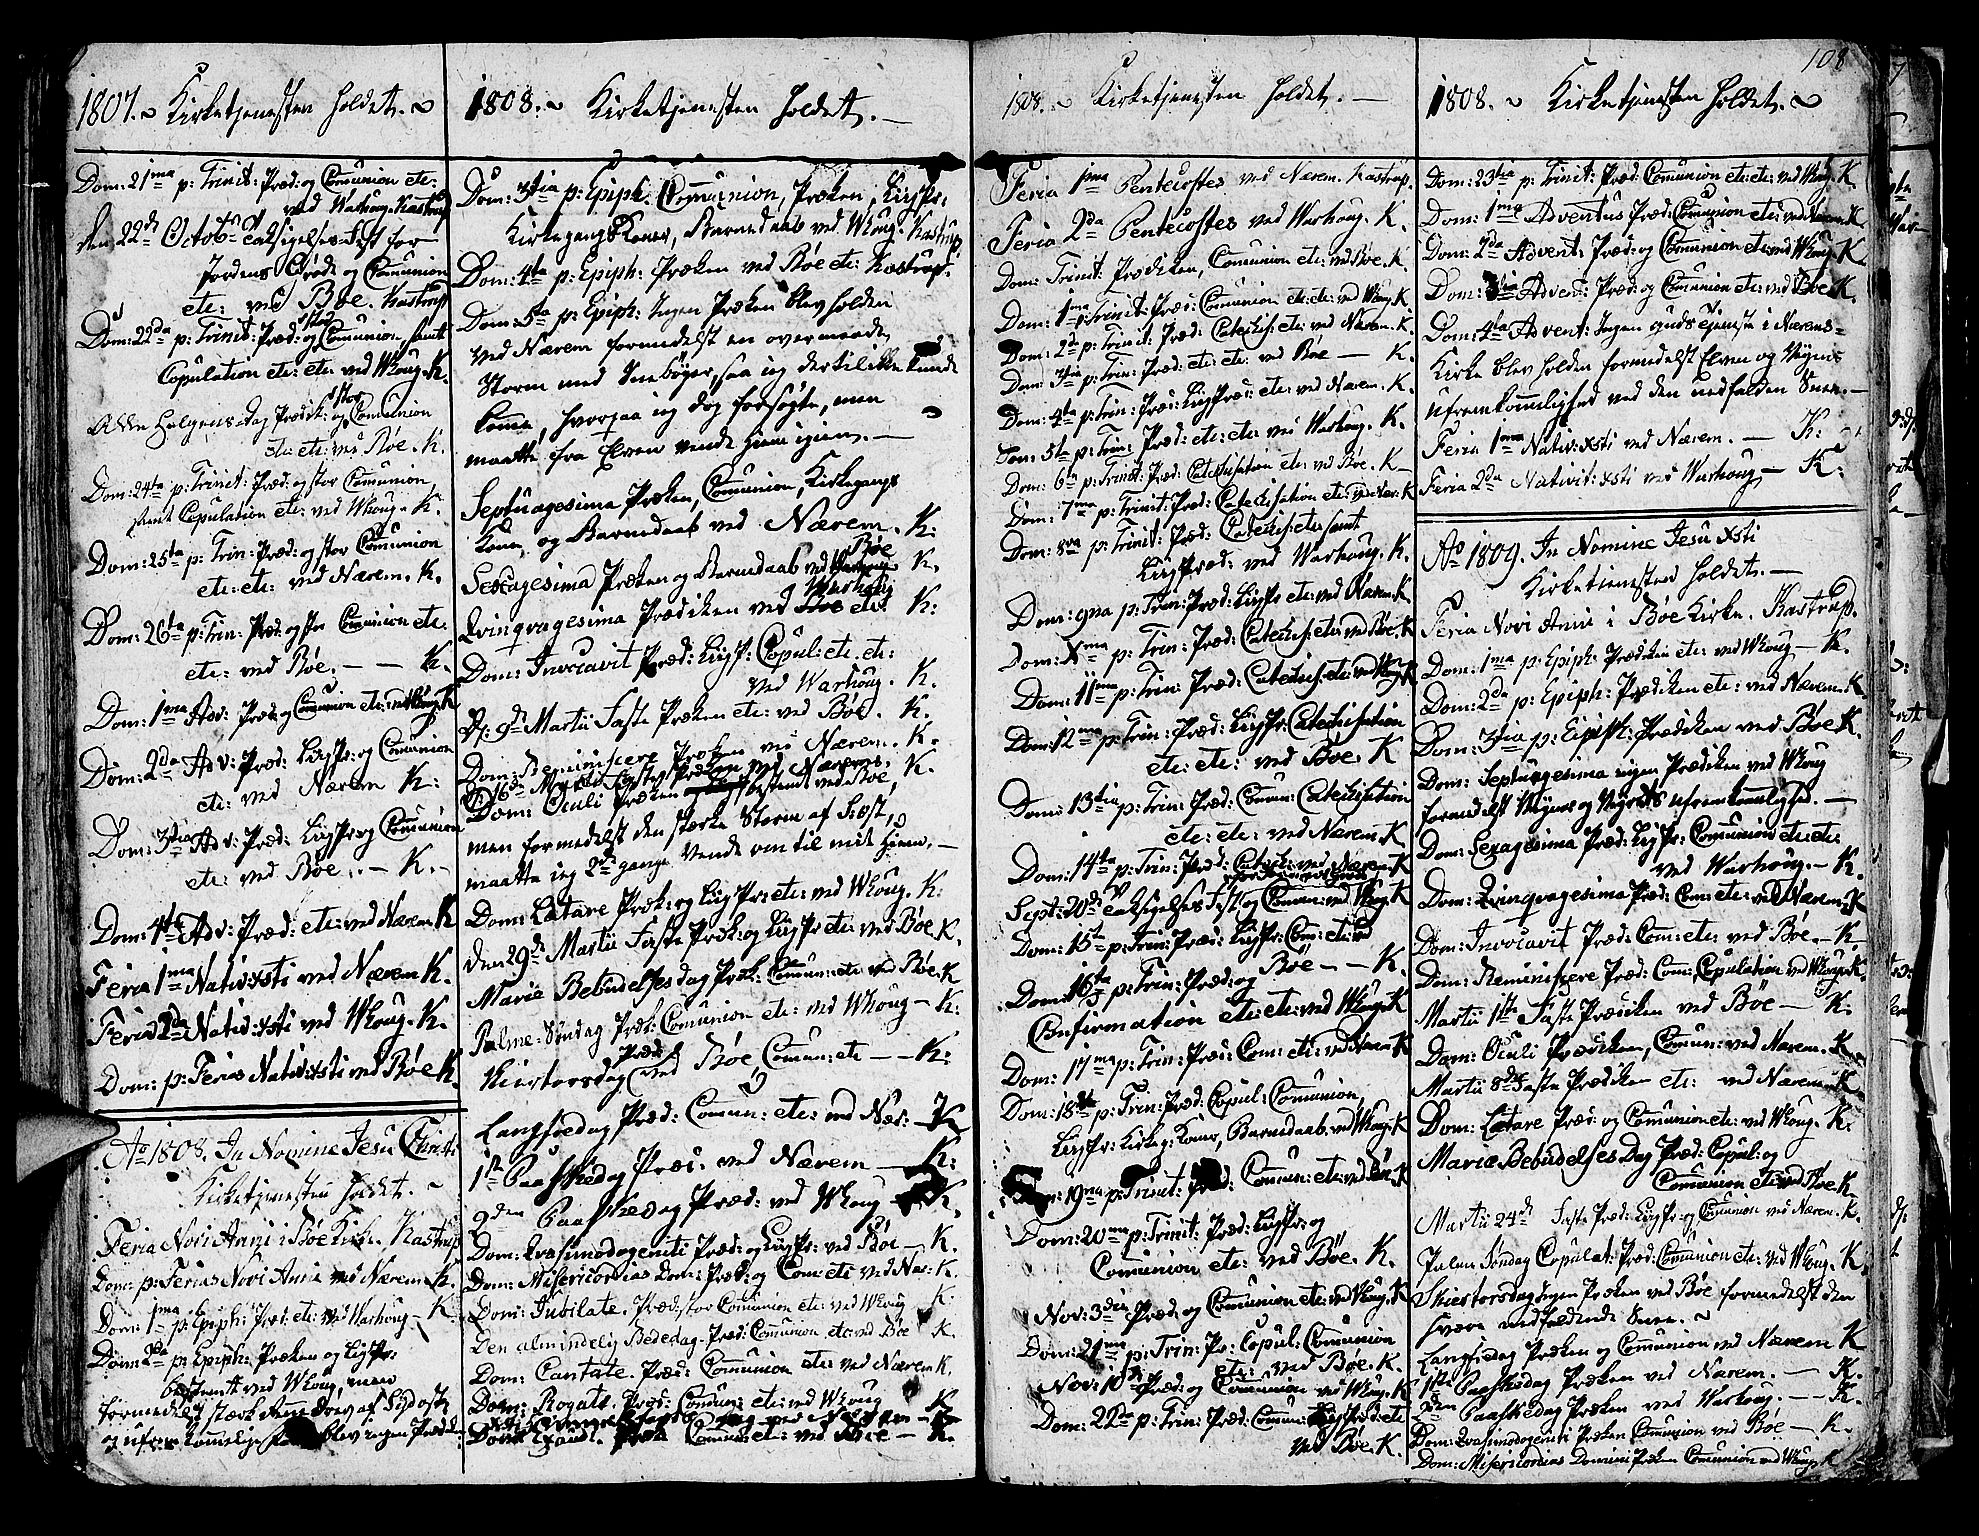 1807. Kirketjenesten holdet.
Dom: 21ma p: Trinit: Præd: og Comunion etc:
ved Warhoug. Kastrup
den 22de Octob: Taksigelses-Fest for
Jordens Grøde og Comunion
etc: ved Bøe. Kastrup
Dom: 22da p: Trinit: Præd: og stor Comunion samt
Copulation etc: etc: ved Whoug. K.
Alle Helgens-dag Prædik: og stor Comunion
etc: etc: ved Bøe. K.
Dom: 24ta p: Trinit: Præd: og stor Comunion,
samt Copulation etc: ved Whoug. K.
Dom: 25ta p: Trin: Præd: og stor Comunion
etc: etc: ved Nærem. K.
Dom: 26ta p: Trin: Præd: og stor Comunion etc:
etc: ved Bøe. — — K.
Dom: 1ma Adv: Præd: og Comunion etc: ved Whoug. K
Dom: 2da Adv: Præd: Ligpr: og Comunion
etc: ved Nærem K:
Dom: 3tia Adv: Præd: Ligpr: og Comunion
etc: ved Bøe. — K. —
Dom: 4ta Adv: Præd: etc: ved Nærem K
Feria 1ma Nativ: Xsti ved Nærem K.
Feria 2da Nativ: Xsti ved Whoug. K.
Dom: p: Ferias Nativ: Xsti ved Bøe K.
Ao 1808. In Nomine Jesu Christi
Kirketjenesten holdet.
Feria Novi Anni i Bøe Kirke. Kastrup
Dom: p: Ferias Novi Anni ved Nærem. K.
Dom: 1ma p: Epiph: Præd: etc: ved Warhoug. K
Dom: 2da p: Epiph: Præken og Ligpr:
bestemt ved Whoug, men
formedelst stærk Storm af Sydost
og ufremkommelige blev ingen Præk:
1808. Kirketjenesten holdet. —
Dom: 3tia p: Epiph: Comunion, Præken, Ligpr:
Kirkegangskoner, Barnedaab ved Whoug. Kastrup
Dom: 4ta p: Epiph: Præken ved Bøe etc: Kastrup.
Dom: 5ta p: Epiph: Ingen Præken blev holden
ved Nærem formedelst en overmaade
Storm med Sneebøger, saa jeg dertil ikke kunde
komme, hvorpaa jeg dog forsøgte, men
maatte fra Elven vende hjem igjen. —
Septuagesima Præken, Comunion, Kirkegangs
Kone og Barnedaab ved Nærem. K:
Sexagesima Præken og Barnedaab ved Bøe K.
Qvinqvagesima Prædiken ved Warhoug etc: K:
Dom: Invocavit Præd: Ligpr: Copul: etc: etc:
ved Warhoug. K.
D: 9de Martii Faste Præken etc: ved Bøe. K.
Dom: Reminiscere Præken ved Nærem. K.
D: 16de Martii Faste Præken ved Nærem.
Dom: Oculi Præken bestemt ved Bøe, K.
men formedelst den stærke Storm af Siøst,
maatte jeg 2de gange vende om til mit Hjem. —
Dom: Lætare Præk: og Ligpr: etc: ved Whoug. K:
den 29de Martii Faste Præk: og Ligpr etc: ved Bøe K.
Mariæ Bebudelsesdag Præk: Comun: etc ved Bøe. K
Palme-Søndag Præk: Comunion etc: ved Whoug — K:
Skiertorsdag Præd: ved Bøe, Comun: etc — — K:
Langfredag Præd: Comun: etc: ved Nær: — K
1ste Paaskedag Præd: ved Nærem — K:
2den Paaskedag Præd: ved Whoug — K.
Dom: Qvasimodogeniti Præd: og Ligpr: ved Bøe — K.
Dom: Misericordias Dom: Præd: og Com: etc ved Nær: K.
Dom: Jubilate. Præd: stor Comunion etc: ved Whoug K.
Den almindelig Bededag. Præd: Comunion etc ved Bøe K.
Dom: Cantate. Præd: Comunion etc: ved Nærem K.
Dom: Rogate. Præd: Comun: etc: ved Whoug K
Dom: Exaudi. Præd: Comun etc: ved Bøe — K.
1808. Kirketjenesten holdet. —
Feria 1ma Pentecostes ved Nærem. Kastrup.
Feria 2da Pentecostes ved Warhoug. K.
Dom: Trinit: Prædiken, Comunion etc: ved Bøe. K.
Dom: 1ma p: Trinit: Præd: Comunion etc: etc: ved Whoug. K.
Dom: 2da p: Trinit: Præd: Catechis: etc: ved Nærem. K.
Dom: 3tia p: Trin: Præd: etc: etc: ved Bøe — K.
Dom: 4ta p: Trin: Præd: Ligpræd: etc: ved Nærem. K.
Dom: 5ta p: Trin: Præd: etc: etc: ved Warhoug. K.
Dom: 6ta p: Trinit: Præd: Catechisation etc: ved Bøe. K —
Dom: 7ma p: Trinit: Præd: Catechisation etc: ved Nær: K
Dom: 8va p: Trinit: Præd: Catechis: etc: samt
Ligpræd: ved Warhoug. K.
Dom: 9na p: Trin: Præd: Ligpr etc: ved Nærem. K
Dom: Xma p: Trin: Præd: Catechis: etc: ved Bøe. K
Dom: 11ma p: Trin: Præd: Catechis: etc: ved Whoug K
Dom: 12ma p: Trin: Præd: Ligpr: Catechisation
etc: etc: ved Bøe. K
Dom: 13tia p: Trin: Præd: Comun: Catechisation
etc: etc: ved Nærem. K
Dom: 14ta p: Trin: Præd: Catech: ved Nærem. K
Sept: 20de Taksigelses Fest og Comun: ved Whoug. K
Dom: 15ta p: Trin: Præd: Ligpr: Com: etc: ved
Bøe — — K.
Dom: 16ta p: Trin: Præd: og
Confirmation etc: etc: ved Whoug. K
Dom: 17ma p: Trin: Præd: Com: etc: ved Nærem K
Dom: 18va p: Trin: Præd: Copul: Comunion,
Ligpr: Kirkeg: Koner, Barnedaab: ved Whoug. K
Dom: 19na p: Trinit: Præd: Comun: etc: ved Bøe. K
Dom: 20ma p: Trinit: Præd: Ligpr: og
Comunion etc: ved Bøe. K.
Nov: 3die Præd: og Comunion etc: ved Whoug. K
Dom: 21ma p: Trin: Pr: Copul: Comunion
etc: ved Bøe. K.
Nov: 10de Præd: og Comunion ved Whoug. K
Dom: 22da p: Trin: Præd: Comun: Ligpræd: etc
ved Bøe. K.
108
1808. Kirketjenesten holdet.
Dom: 23tia p: Trinit: Præd: Comunion etc: etc: ved Whoug. K.
Dom: 1ma Adventus Præd: Comunion etc: ved Nærem K
Dom: 2da Advent: Præd: og Comunion etc: ved Whoug. K
Dom: 3tia Advent: Præd: og Comunion etc: ved Bøe K.
Dom: 4ta Advent: Ingen Gudstjeneste i Nærems-
Kirke blev holden formedelst Elven og Veyens
ufremkommelighed ved den nedfalden Snee. —
Feria 1ma Nativ: Xsti ved Nærem. — K:
Feria 2da Nativit: Xsti ved Warhoug — K:
Ao 1809. In Nomine Jesu Xsti
Kirketienesten holdet. —
Feria Novi Anni i Bøe Kirke. Kastrup.
Dom: 1ma p: Epiph: Prædiken etc: ved Whoug — K.
Dom: 2da p: Epiph: Prædiken etc: ved Nærem. K.
Dom: 3tia p: Epiph: Prædiken ved Bøe K.
Dom: Septuagesima ingen Prædiken ved Whoug
formedelst Veyens og Veyrets ufremkommelighed. —
Dom: Sexagesima Præd: Ligpr: Comunion etc: etc:
ved Warhoug. — K.
Dom: Qvinqvagesima Præd: Com: etc: ved Nærem. K
Dom: Invocavit Præd: Com: etc: ved Bøe. — K.
Dom: Reminiscere Præd: Com:, Copulation ved Whoug. K.
Martii 1ste Faste Prædiken ved Bøe — K:
Dom: Oculi Prædiken, Comun: ved Nærem. K
Martii 8de Faste Prædiken etc: ved Nærem K
Dom: Lætare Præd: og Comunion etc: ved Whoug. K.
Mariæ Bebudelses Dag Præd: Copul: og
Comunion etc: ved Bøe K.
Martii 24de Faste Præd: Ligpr: og Comunion ved Nærem. K.
Palme Søndag Copulat: Præd: Comunion etc: ved Whoug. K.
Skiertorsdag Ingen Præken ved Bøe formedelst den
svære nedfaldende Snee.
Langfredag Præken og Comunion ved Nærem K
1ste Paaskedag Præken ved Nærem. — K.
2den Paaskedag Præken ved Warhoug. — K.
Dom: Qvasimodogeniti Præken Comunion ved Bøe — K.
Dom: Misericordias Domini Præken Comunion ved Whoug. K